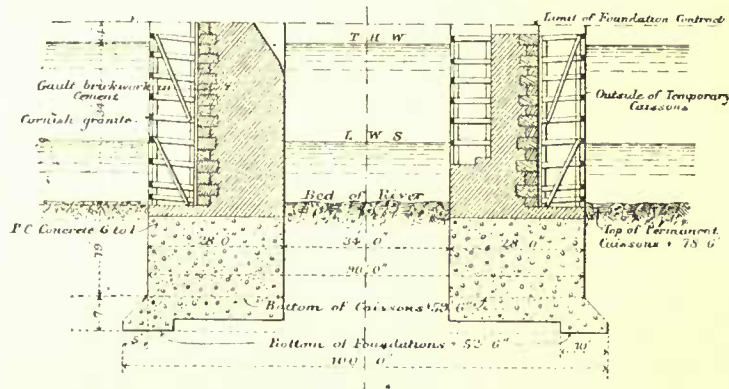 Limit of Foundation Contract
T H W
Gault brickwork in
Cement
Outside of Temporary
Caissons
Cornish granite
L W S
Bed of River
P C Concrete 6 to 1
Top of Permanent
Caissons + 78 6"
28 0"
34 0
28 0"
90 0"
19
Bottom of Caissons + 59 6"
7
5
Bottom of Foundations + 52 6"
10'
100 0"